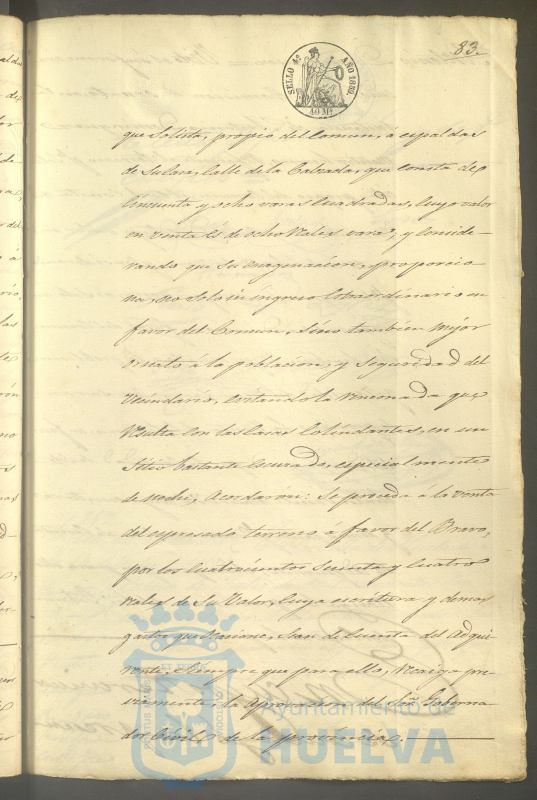 83.
SELLO 4º AÑO 1859.
40 Ms
que solicita, propio del Comun, a espaldas
de su casa, Calle de la Calzada, que consta de
Cincuenta y ocho varas Cuadradas, cuyo valor
en venta es de ocho reales vara, y conside-
rando que su enagenacion, proporcio
na, no solo un ingreso extraordinario en
favor del Comun, sino tambien mejor
ornato á la poblacion, y seguridad del
Vecindario, cortando la rinconada que
resulta con las casas colindantes, en un
sitio bastante escusado, especialmente
de noche, Acordaron: Se proceda á la venta
del espresado terreno á favor del Bravo,
por los cuatrocientos sesenta y cuatro
reales de su valor, cuya escritura y demas
gastos que ocasione, seran de cuenta del Adqui-
rente, siempre que para ello, recaiga pre-
viamente la aprovacion del Señor Goberna
dor Civil de la provincia.
Ayuntamiento de
HUELVA